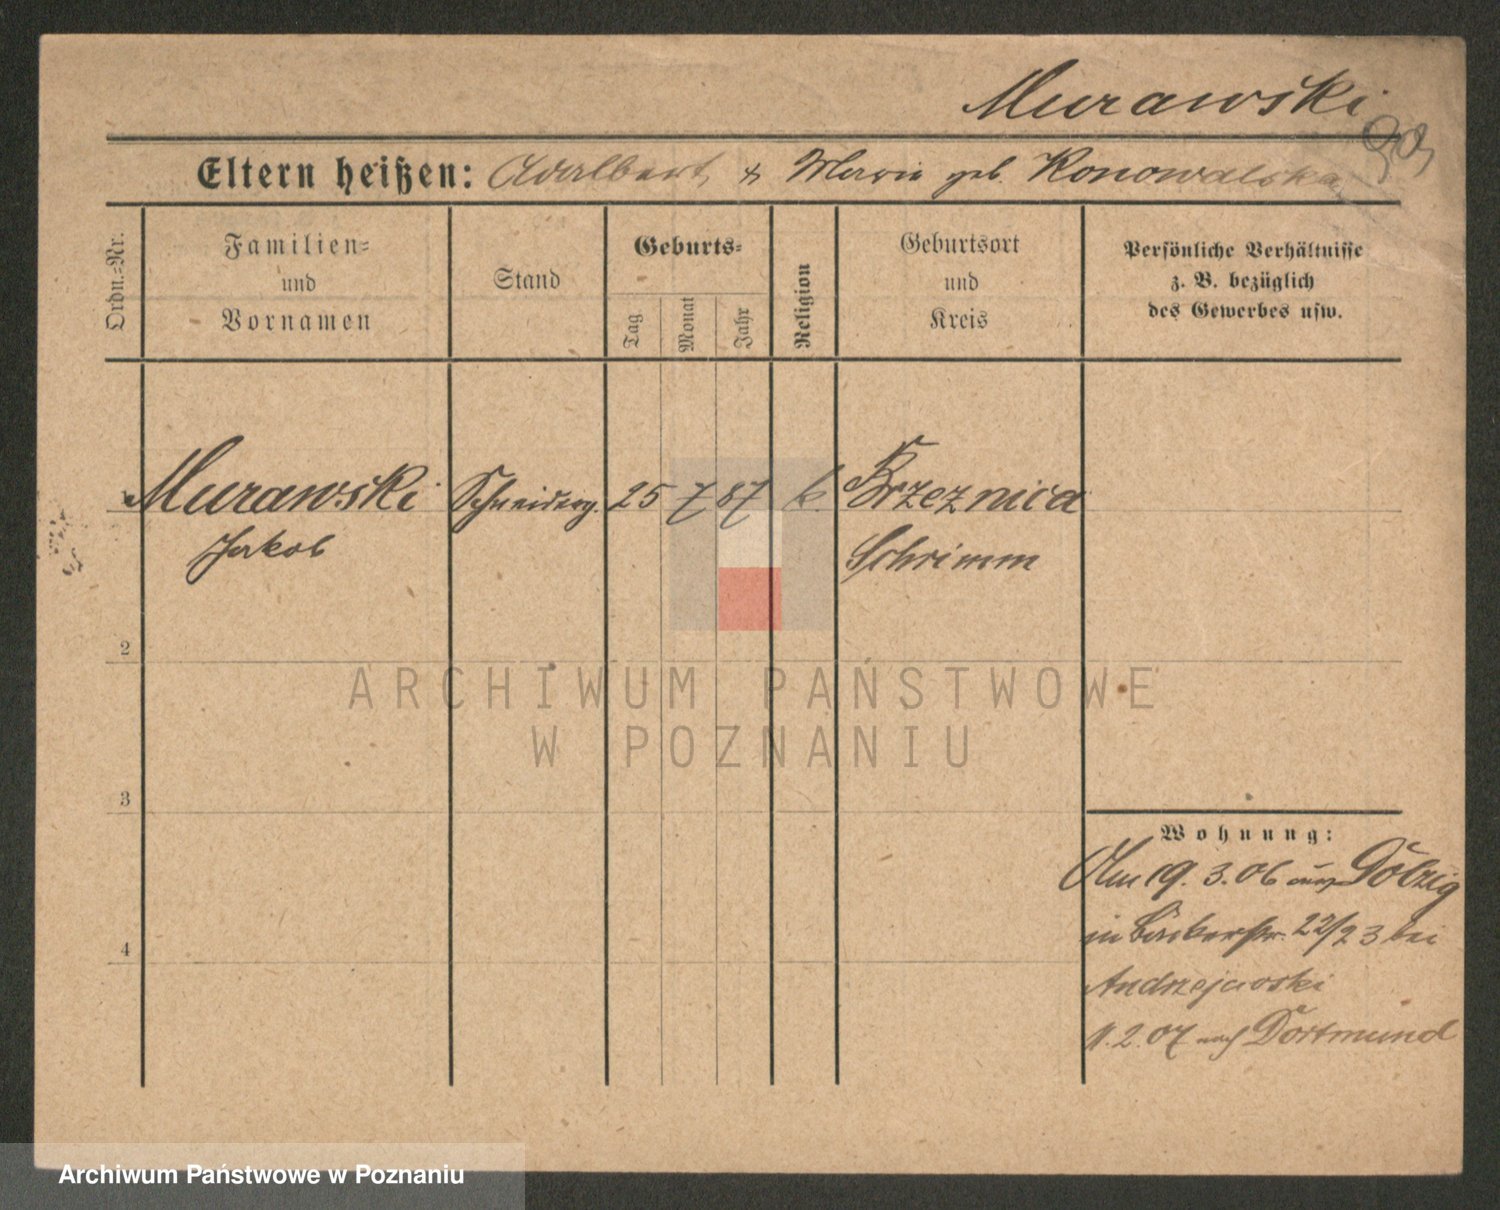 Murawski
Eltern heißen: Adalbert & Marie geb. Konowalska
Ordn.=Nr.
Familien=
und
Vornamen
Stand
Geburts=
Tag
Monat
Jahr
Religion
Geburtsort
und
Kreis
Persönliche Verhältnisse
z. B. bezüglich
des Gewerbes usw.
Murawski Schneiderg. 25 7 87 k. Brzeznica
Jakob Schrimm
2
3
4
ARCHIWUM PAŃSTWOWE
W POZNANIU
Wohnung:
Am 19. 3. 06 aus Gölzig
in Bäckerstr. 22/23 bei
Andrzejewski
11. 2. 07 nach Dortmund
Archiwum Państwowe w Poznaniu